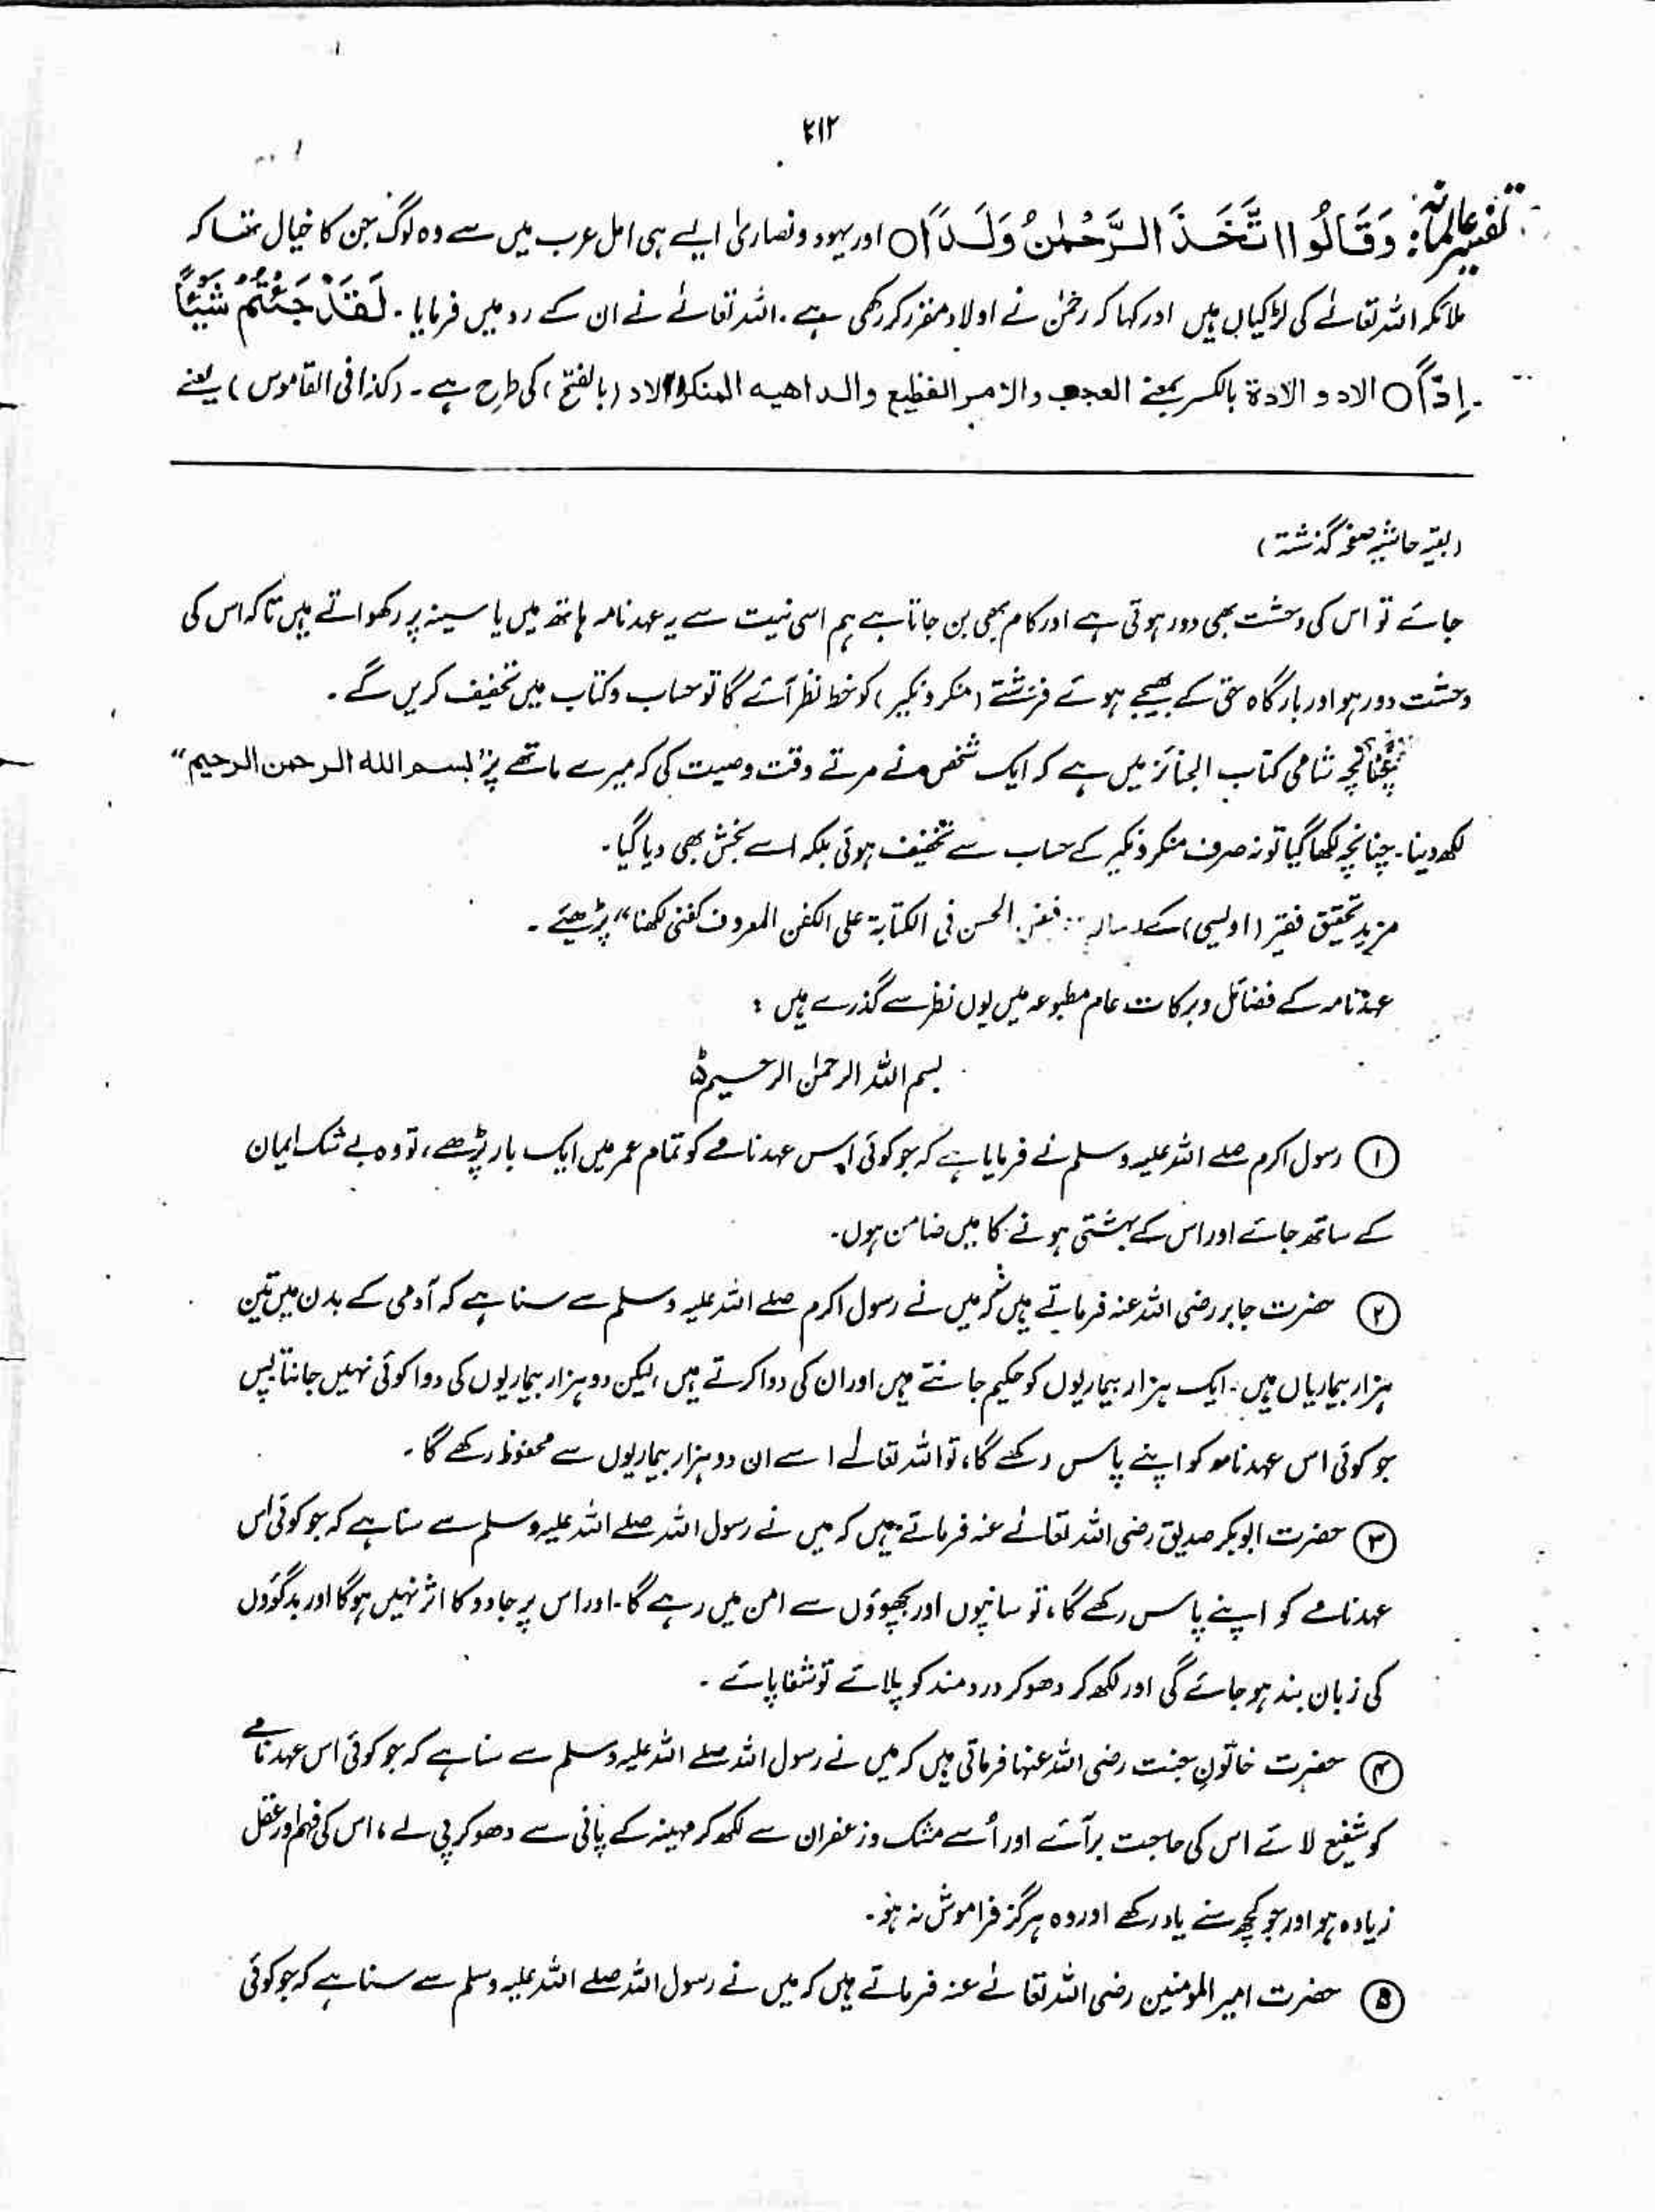 ۲۱۲
تفسیر عالمانہ: وَقَالُوا اتَّخَذَ الرَّحْمٰنُ وَلَدًا ○ اور یہود و نصاریٰ ایسے ہی اہل عرب میں سے وہ لوگ جن کا خیال تھا کہ
ملائکہ اللہ تعالےٰ کی لڑکیاں ہیں اور کہا کہ رحمٰن نے اولاد مقرر کر رکھی ہے ۔ اللہ تعالےٰ نے ان کے رد میں فرمایا ۔ لَقَدْ جِئْتُمْ شَيْئًا
إِدًّا ○ الاد و الادۃ بالکسر بمعنے العجب والامر الفظیع والداھیہ المنکر الاد (بالفتح) کی طرح ہے ۔ (کذا فی القاموس) یعنے
(بقیہ حاشیہ صفحہ گذشتہ)
جائے تو اس کی وحشت بھی دور ہوتی ہے اور کام بھی بن جاتا ہے ہم اسی نیت سے یہ عہد نامہ ہاتھ میں یا سینہ پر رکھواتے ہیں تاکہ اس کی
وحشت دور ہو اور بارگاہ حق کے بھیجے ہوئے فرشتے (منکر و نکیر) کو خط نظر آئے گا تو حساب و کتاب میں تخفیف کریں گے ۔
چنانچہ شامی کتاب الجنائز میں ہے کہ ایک شخص نے مرتے وقت وصیت کی کہ میرے ماتھے پر ”بسم اللہ الرحمن الرحیم“
لکھ دینا ۔ چنانچہ لکھا گیا تو نہ صرف منکر و نکیر کے حساب سے تخفیف ہوئی بلکہ اسے بخش بھی دیا گیا ۔
مزید تحقیق فقیر (اویسی) کے رسالہ الحسن فی الکتابۃ علی الکفن المعروف کفنی لکھنا“ پڑھیئے ۔
عہدنامہ کے فضائل و برکات عام مطبوعہ میں یوں نظر سے گذرے ہیں :
بسم اللہ الرحمٰن الرحیم ط
① رسول اکرم صلے اللہ علیہ وسلم نے فرمایا ہے کہ جو کوئی اس عہد نامے کو تمام عمر میں ایک بار پڑھے ، تو وہ بے شک ایمان
کے ساتھ جائے اور اس کے بہشتی ہونے کا میں ضامن ہوں ۔
② حضرت جابر رضی اللہ عنہ فرماتے ہیں کہ میں نے رسول اکرم صلے اللہ علیہ وسلم سے سنا ہے کہ آدمی کے بدن میں تین
ہزار بیماریاں ہیں ۔ ایک ہزار بیماریوں کو حکیم جانتے ہیں اور ان کی دوا کرتے ہیں ، لیکن دو ہزار بیماریوں کی دوا کوئی نہیں جانتا پس
جو کوئی اس عہد نامہ کو اپنے پاس رکھے گا ، تو اللہ تعالےٰ اسے ان دو ہزار بیماریوں سے محفوظ رکھے گا ۔
③ حضرت ابوبکر صدیق رضی اللہ تعالےٰ عنہ فرماتے ہیں کہ میں نے رسول اللہ صلے اللہ علیہ وسلم سے سنا ہے کہ جو کوئی اس
عہد نامے کو اپنے پاس رکھے گا ، تو سانپوں اور بچھوؤں سے امن میں رہے گا ۔ اور اس پر جادو کا اثر نہیں ہوگا اور بدگوؤں
کی زبان بند ہو جائے گی اور لکھ کر دھو کر دردمند کو پلائے تو شفا پائے ۔
④ حضرت خاتونِ جنت رضی اللہ عنہا فرماتی ہیں کہ میں نے رسول اللہ صلے اللہ علیہ وسلم سے سنا ہے کہ جو کوئی اس عہد نامے
کو شفیع لائے اس کی حاجت برآئے اور اُسے مشک و زعفران سے لکھ کر مہینہ کے پانی سے دھو کر پی لے ، اس کی فہم اور عقل
زیادہ ہو اور جو کچھ سنے یاد رکھے اور وہ ہرگز فراموش نہ ہو ۔
⑤ حضرت امیر المومنین رضی اللہ تعالےٰ عنہ فرماتے ہیں کہ میں نے رسول اللہ صلے اللہ علیہ وسلم سے سنا ہے کہ جو کوئی